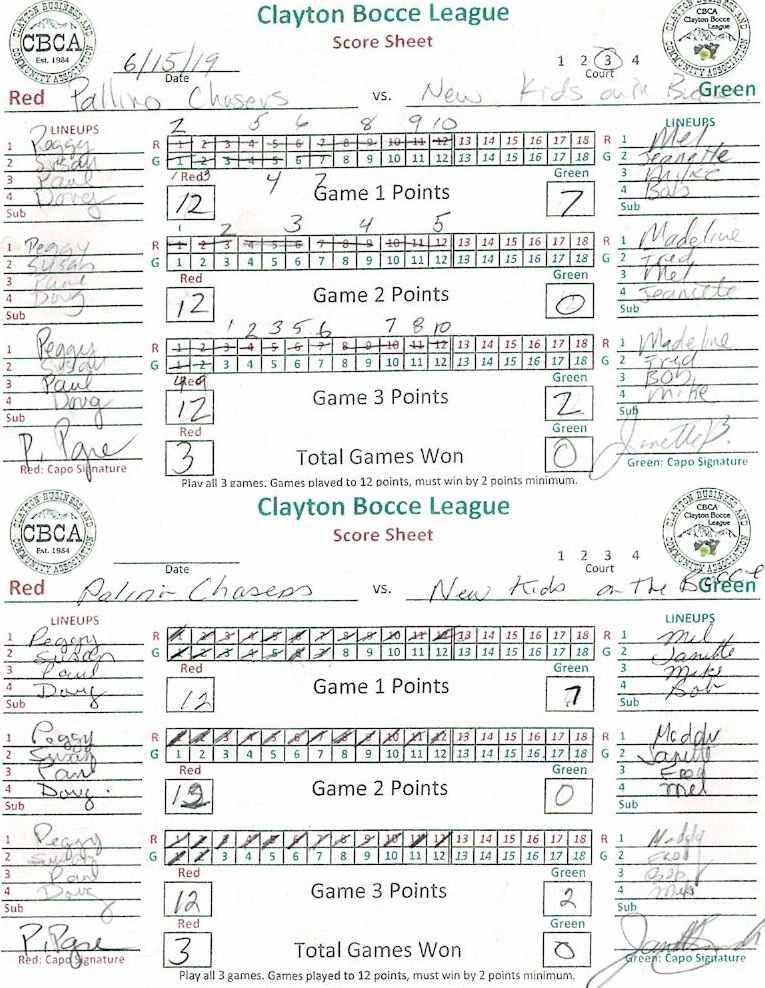 Clayton Bocce League
Score Sheet
CLAYTON BUSINESS AND COMMUNITY ASSOCIATION
CBCA
Est. 1984
CBCA
Clayton Bocce
League
6/15/19
Date
1 2 3 4
Court
Red Pallino Chasers vs. New Kids on Green
LINEUPS
LINEUPS
2 5 6 8 9 10
1 Peggy R 1 2 3 4 5 6 7 8 9 10 11 12 13 14 15 16 17 18 R 1 Mel
2 Susan G 1 2 3 4 5 6 7 8 9 10 11 12 13 14 15 16 17 18 G 2 Jeanette
1 Red 3 4 7 Green
3 Paul 3 Mike
4 Doug 12 Game 1 Points 7 4 Bob
Sub Sub
1 2 3 4 5
1 Peggy R 1 2 3 4 5 6 7 8 9 10 11 12 13 14 15 16 17 18 R 1 Madeline
2 Susan G 1 2 3 4 5 6 7 8 9 10 11 12 13 14 15 16 17 18 G 2 Fred
Red Green
3 Paul 3 Mel
4 Doug 12 Game 2 Points 0 4 Jeanette
Sub Sub
1 2 3 5 6 7 8 10
1 Peggy R 1 2 3 4 5 6 7 8 9 10 11 12 13 14 15 16 17 18 R 1 Madeline
2 Susan G 1 2 3 4 5 6 7 8 9 10 11 12 13 14 15 16 17 18 G 2 Fred
4 Red 9 Green
3 Paul 3 Bob
4 Doug 12 Game 3 Points 2 4 Mike
Sub Sub
Red Green
P. Pgre 3 Total Games Won 0 Janette B.
Red: Capo Signature Green: Capo Signature
Play all 3 games. Games played to 12 points, must win by 2 points minimum.
Clayton Bocce League
Score Sheet
CLAYTON BUSINESS AND COMMUNITY ASSOCIATION
CBCA
Est. 1984
CBCA
Clayton Bocce
League
Date
1 2 3 4
Court
Red Chasers vs. New Kids on The Bocce Green
LINEUPS
LINEUPS
1 Peggy R 1 2 3 4 5 6 7 8 9 10 11 12 13 14 15 16 17 18 R 1 Mel
2 Susan G 1 2 3 4 5 6 7 8 9 10 11 12 13 14 15 16 17 18 G 2 Janette
Red Green
3 Paul 3 Mike
4 Doug 12 Game 1 Points 7 4 Bob
Sub Sub
1 Peggy R 1 2 3 4 5 6 7 8 9 10 11 12 13 14 15 16 17 18 R 1 Maddy
2 Susan G 1 2 3 4 5 6 7 8 9 10 11 12 13 14 15 16 17 18 G 2 Janette
Red Green
3 Paul 3 Fred
4 Doug. 12 Game 2 Points 0 4 Mel
Sub Sub
1 Peggy R 1 2 3 4 5 6 7 8 9 10 11 12 13 14 15 16 17 18 R 1 Maddy
2 Susan G 1 2 3 4 5 6 7 8 9 10 11 12 13 14 15 16 17 18 G 2 Fred
Red Green
3 Paul 3 Bob
4 Doug 12 Game 3 Points 2 4 Mike
Sub Sub
Red Green
P. Pgre 3 Total Games Won 0
Red: Capo Signature Green: Capo Signature
Play all 3 games. Games played to 12 points, must win by 2 points minimum.